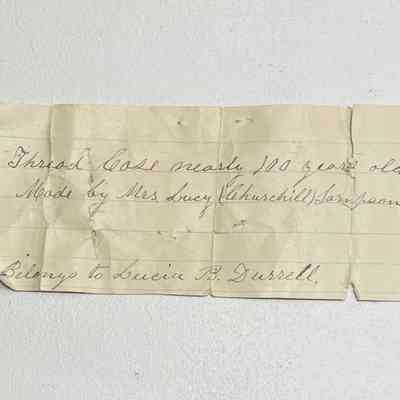 Thread Case nearly 100 years old
Made by Mrs Lucy (Churchill) Sampson
Belongs to Lucia B. Durrell.